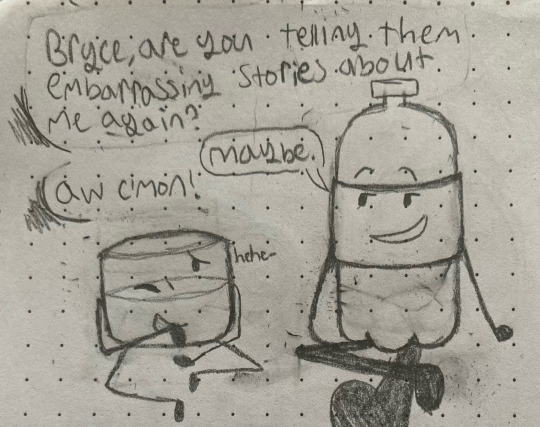 Bryce, are you telling them
embarrassing stories about
me again?
maybe.
aw c'mon!
hehe-